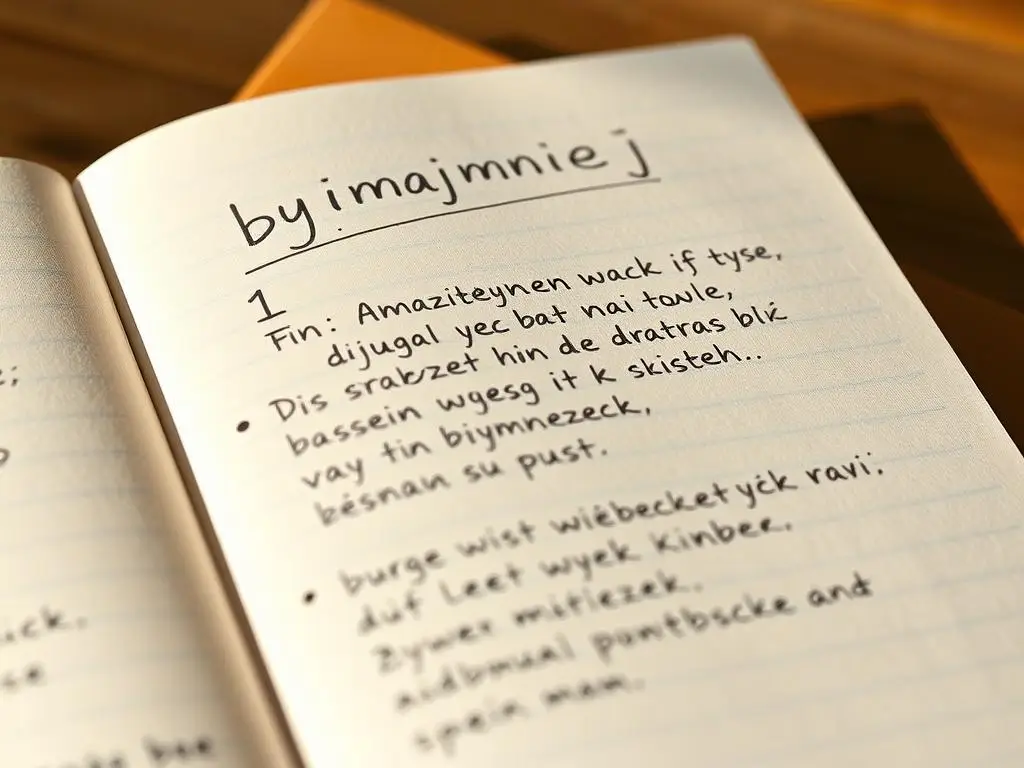 byimajmnie j
1
Fin: Amaziteynen wack if tyse,
dijugal yec bat nai towle,
• Dis srakzet hin de dratras blić
bassein wgesg it k skisteh..
vay tin biymnezeck,
bésnan su pust.
• burge wist wiébecket yćk ravi;
duf Leet wyek Kinbee.
Zywer mitlezek.
and
mam.
uck.
se
bee